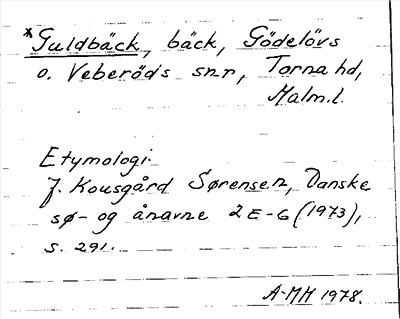 *Guldbäck, bäck, Gödelövs
o. Veberöds snr, Torna hd,
Malm.l.
Etymologi.
J. Kousgård Sørensen, Danske
sø- og ånavne 2 E-G (1973),
s. 291.
A-MH 1978.